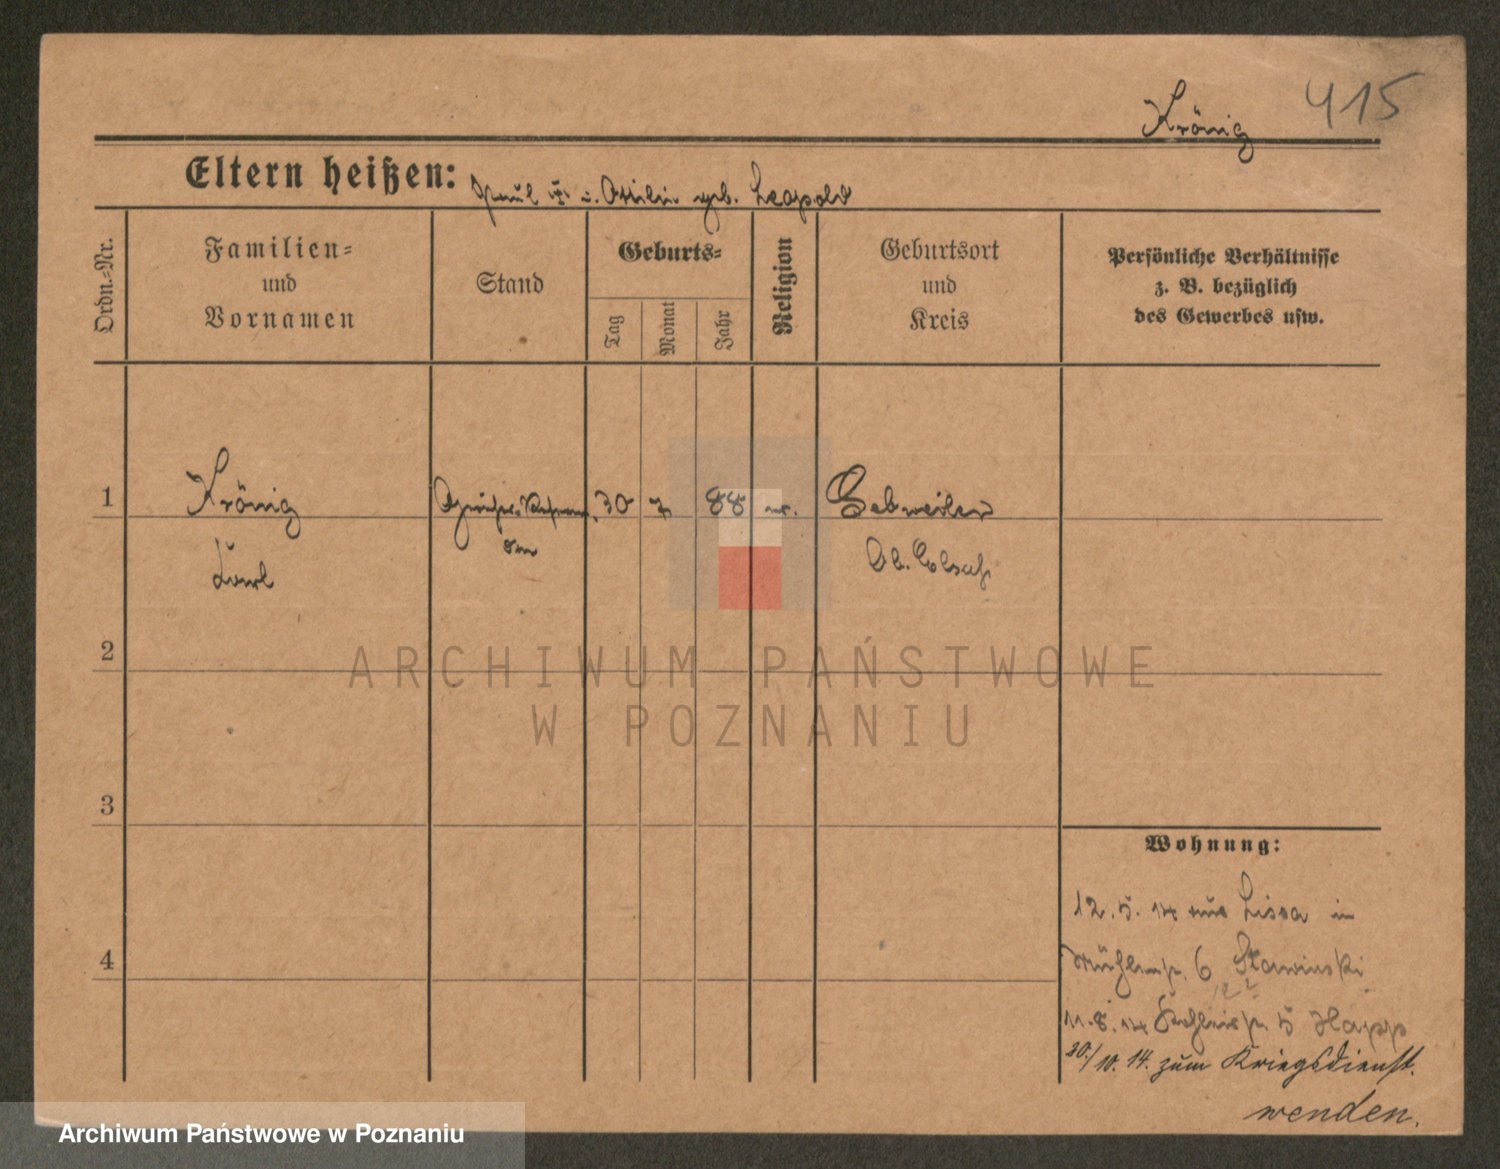 Krönig 415
Eltern heißen: Paul u. Ottilie geb. Leopold
Ordn.-Nr.
Familien-
und
Vornamen
Stand
Geburts-
Tag
Monat
Jahr
Religion
Geburtsort
und
Kreis
Persönliche Verhältnisse
z. B. bezüglich
des Gewerbes usw.
1 Krönig 30 7 88 Gebweiler
Ob. Elsaß
2
ARCHIWUM PAŃSTWOWE
W POZNANIU
3
4
Wohnung:
12. 5. 14 aus Lissa in
Mühlenstr. 6 Slawinski
11. 8. 14 5 Happ
30./10. 14. zum Kriegsdienst.
wenden.
Archiwum Państwowe w Poznaniu